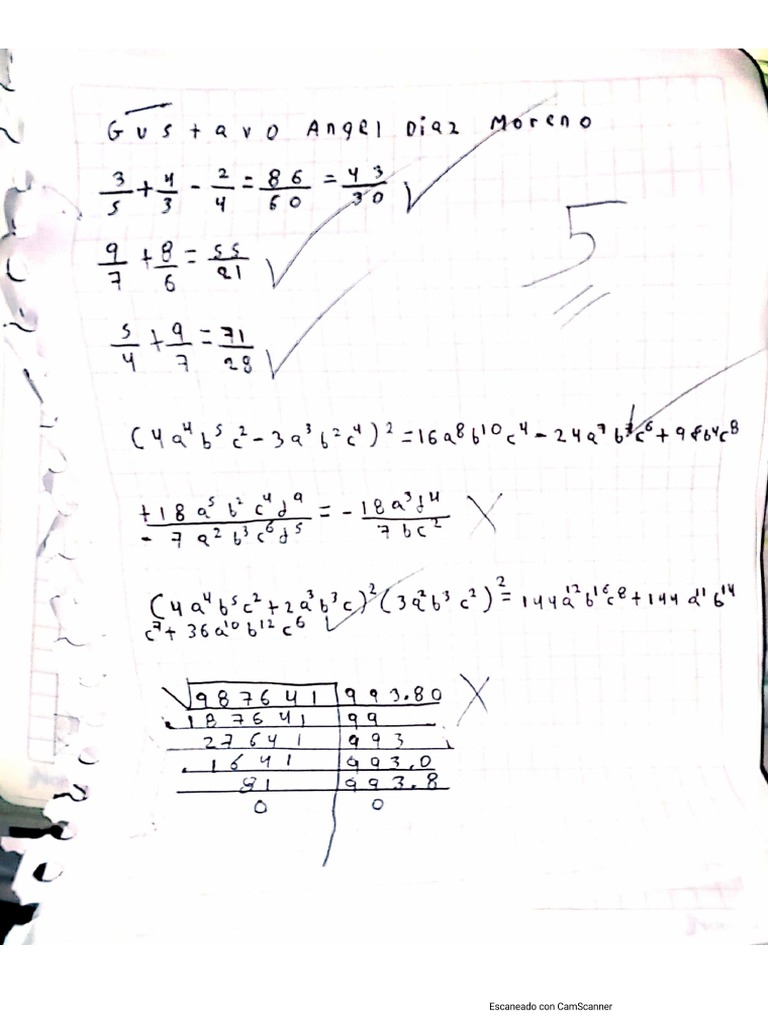 Gustavo Angel Diaz Moreno
3/5 + 4/3 - 2/4 = 86/60 = 43/30 ✓
5
9/7 + 8/6 = 55/21 ✓
5/4 + 9/7 = 71/28 ✓
(4a⁴b⁵c² - 3a³b²c⁴)² = 16a⁸b¹⁰c⁴ - 24a⁷b⁷c⁶ + 9a⁶b⁴c⁸
+18a⁵b²c⁴d⁹/-7a²b³c⁶d⁵ = -18a³d⁴/7bc² X
(4a⁴b⁵c² + 2a³b³c)² (3a²b³c²)² = 144a¹²b¹⁶c⁸ + 144a¹¹b¹⁴
c⁷ + 36a¹⁰b¹²c⁶ ✓
√987641 | 993.80 X
187641 | 99
27641 | 993
1641 | 993.0
81 | 993.8
0 | 0
Escaneado con CamScanner